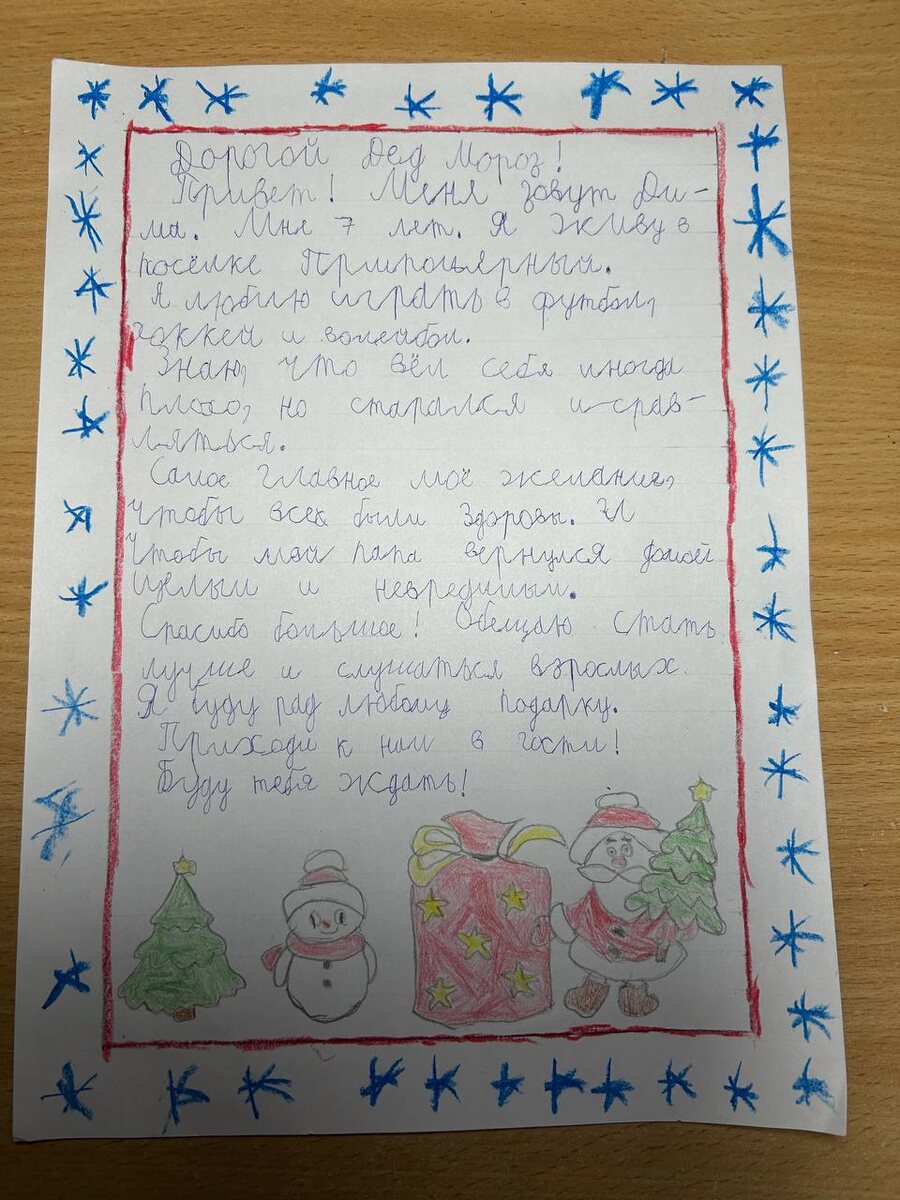 Дорогой Дед Мороз!
Привет! Меня зовут Ди-
ма. Мне 7 лет. Я живу в
посёлке Приполярный.
Я люблю играть в футбол,
хоккей и волейбол.
Знаю, что вёл себя иногда
плохо, но старался исправ-
ляться.
Самое главное моё желание,
чтобы все были здоровы. И
чтобы мой папа вернулся домой
целым и невредимым.
Спасибо большое! Обещаю стать
лучше и слушаться взрослых.
Я буду рад любому подарку.
Приходи к нам в гости!
Буду тебя ждать!